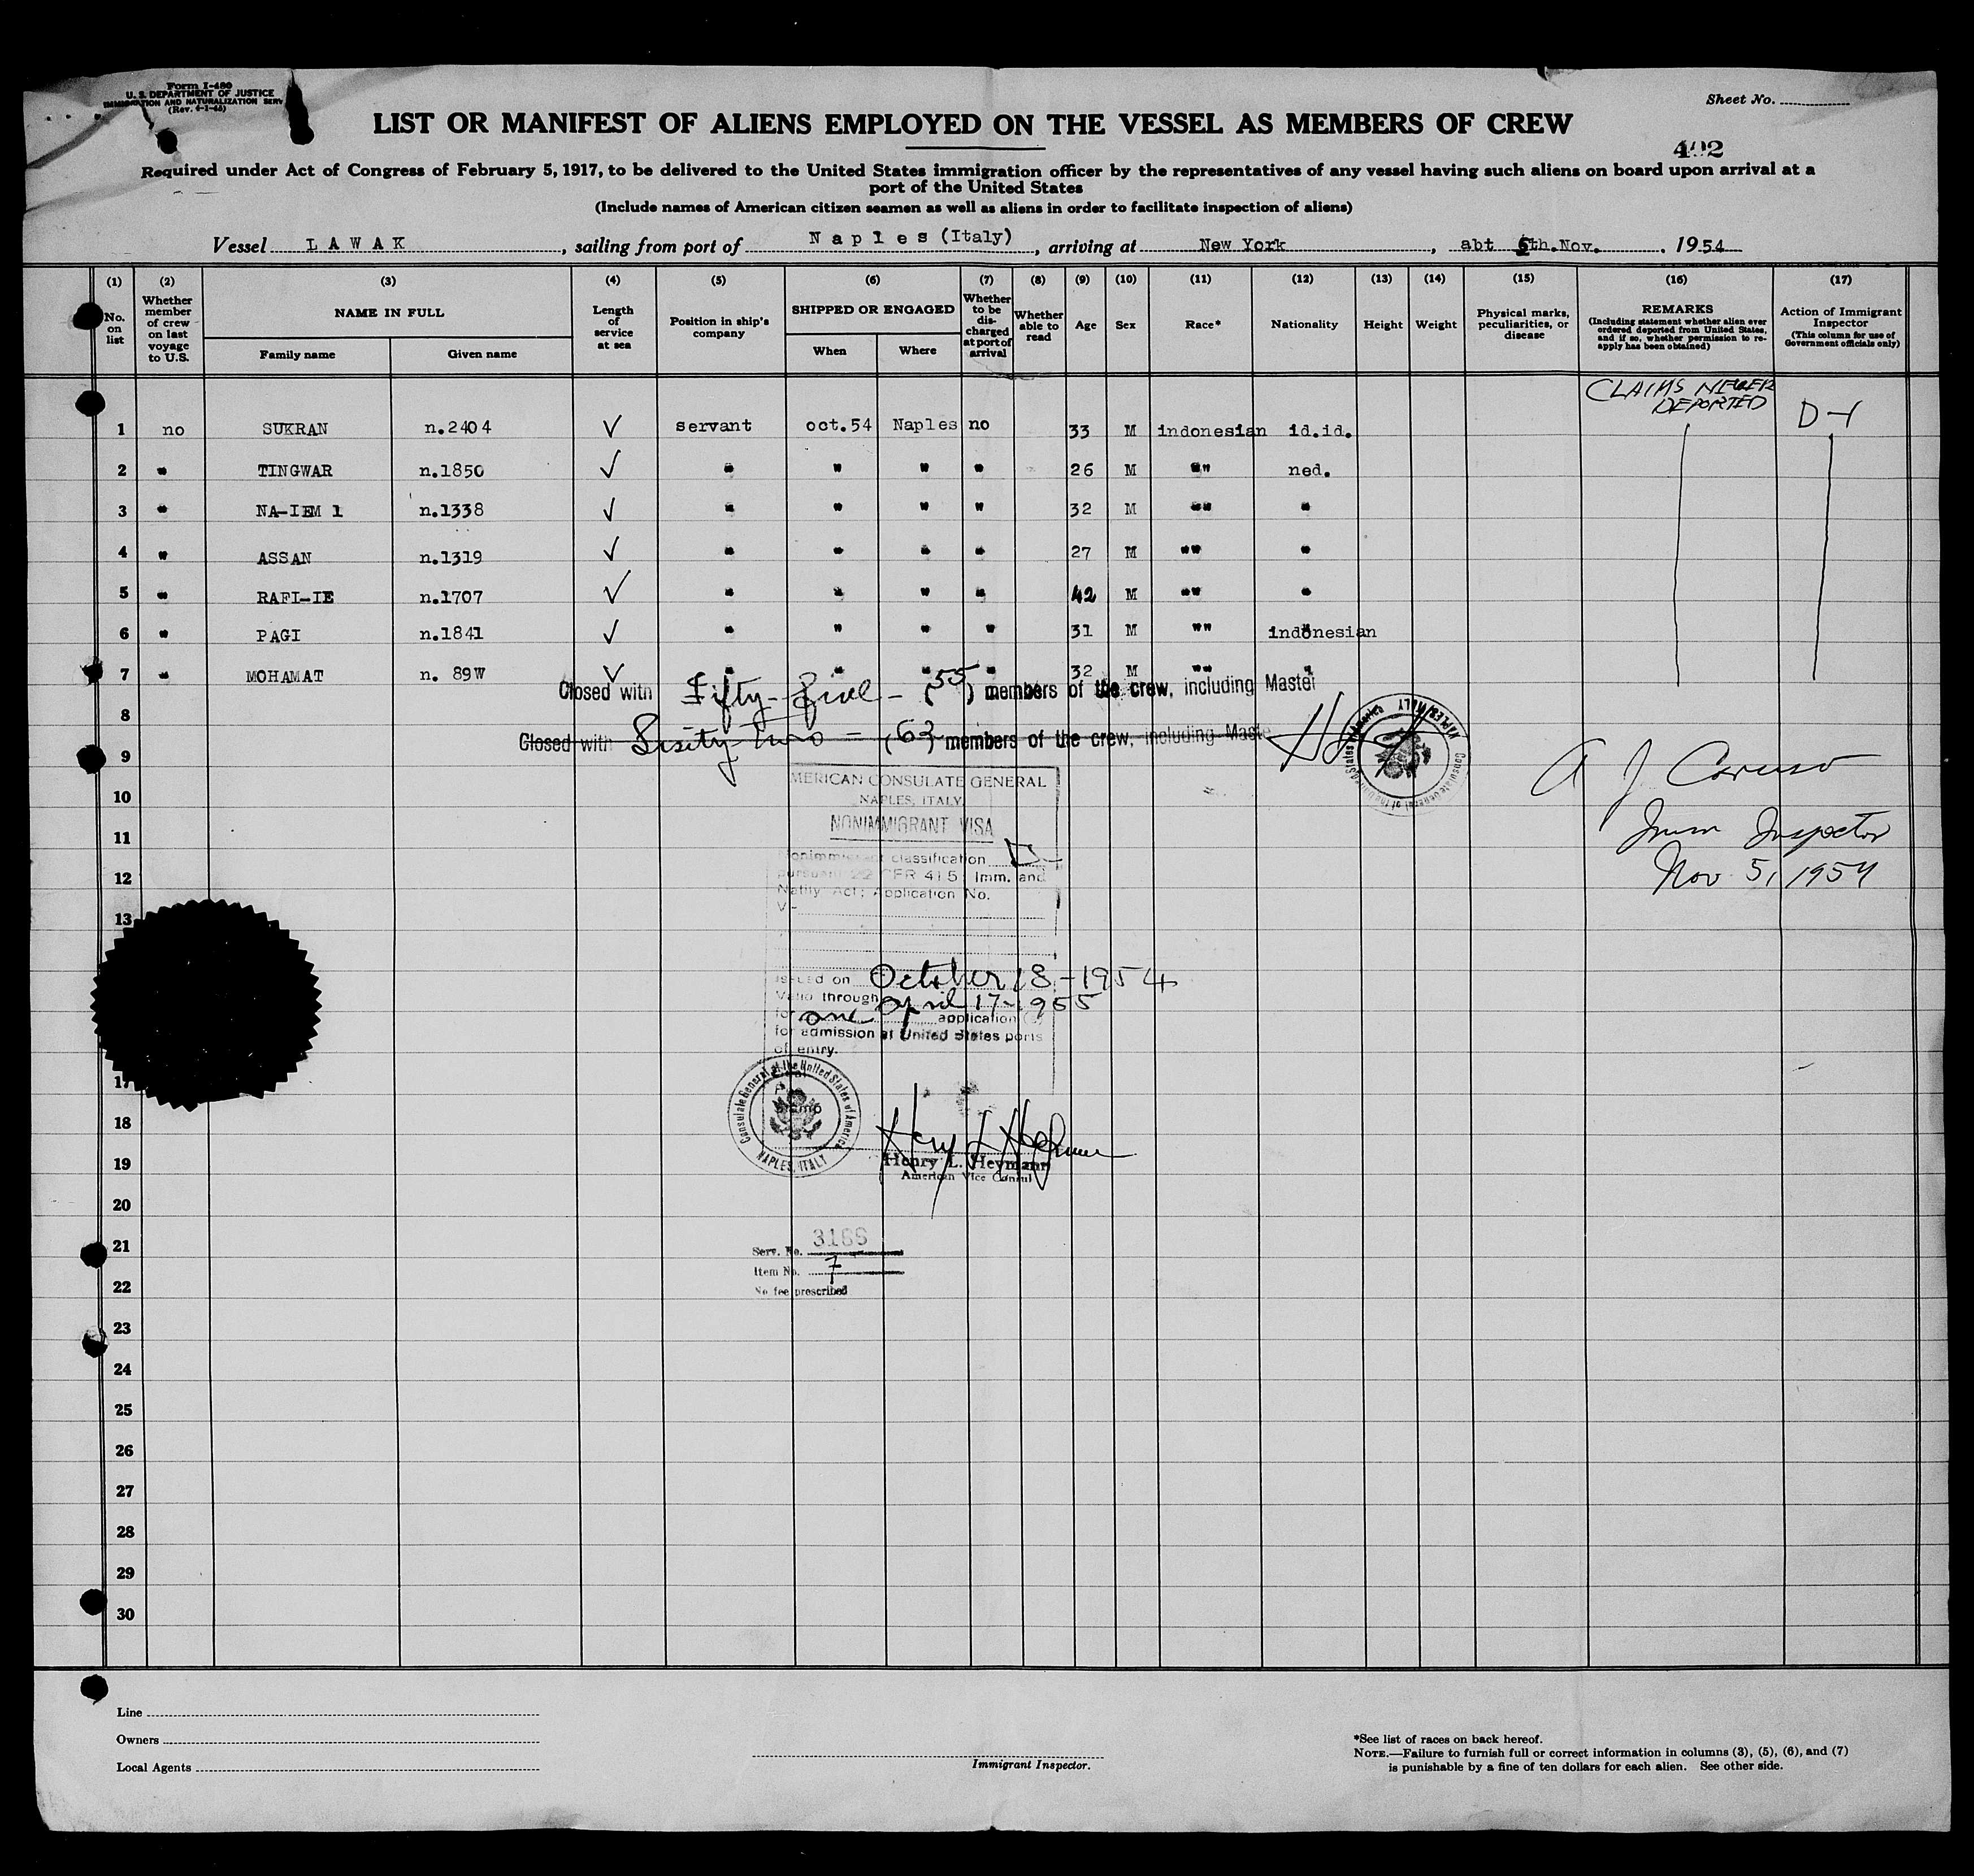 Form I-480
U. S. DEPARTMENT OF JUSTICE
IMMIGRATION AND NATURALIZATION SERV
(Rev. 4-1-45)
Sheet No.
LIST OR MANIFEST OF ALIENS EMPLOYED ON THE VESSEL AS MEMBERS OF CREW
402
Required under Act of Congress of February 5, 1917, to be delivered to the United States immigration officer by the representatives of any vessel having such aliens on board upon arrival at a
port of the United States
(Include names of American citizen seamen as well as aliens in order to facilitate inspection of aliens)
Vessel LAWAK, sailing from port of Naples (Italy), arriving at New York, abt 5th.Nov. 1954
(1) (2) (3) (4) (5) (6) (7) (8) (9) (10) (11) (12) (13) (14) (15) (16) (17)
No. on list
Whether member of crew on last voyage to U.S.
NAME IN FULL
Family name
Given name
Length of service at sea
Position in ship's company
SHIPPED OR ENGAGED
When
Where
Whether to be discharged at port of arrival
Whether able to read
Age
Sex
Race*
Nationality
Height
Weight
Physical marks, peculiarities, or disease
REMARKS
(Including statement whether alien ever ordered deported from United States, and if so, whether permission to re-apply has been obtained)
Action of Immigrant Inspector
(This column for use of Government officials only)
CLAIMS NEVER
DEPORTED
D-1
1 no SUKRAN n.2404 ✓ servant oct.54 Naples no 33 M indonesian id.id.
2 " TINGWAR n.1850 ✓ " " " " 26 M "" ned.
3 " NA-IEM 1 n.1338 ✓ " " " " 32 M "" "
4 " ASSAN n.1319 ✓ " " " " 27 M "" "
5 " RAFI-IE n.1707 ✓ " " " " 42 M "" "
6 " PAGI n.1841 ✓ " " " " 31 M "" indonesian
7 " MOHAMAT n. 89W ✓ " " " " 32 M "" "
Closed with Fifty-five - (55) members of the crew, including Master
8
Closed with Sixty-two = (62) members of the crew, including Maste
9
A J Caruso
Imm Inspector
Nov 5, 1954
Consulate General of the United States of America
NAPLES, ITALY
MERICAN CONSULATE GENERAL
NAPLES, ITALY.
10
NONIMMIGRANT VISA
11
Nonimmigrant classification D
pursuant 22 CFR 41.5; Imm. and
12
Natlty Act; Application No.
V-
13
Issued on October 18-1954
Valid through April 17-1955
for one application(s)
for admission at United States ports
of entry.
17
Consulate General of the United States of America
NAPLES, ITALY
18
Henry L. Heymann
American Vice Consul
19
20
21
Serv. No. 3188
Item No. 7
No fee prescribed
22
23
24
25
26
27
28
29
30
Line
Owners
Local Agents
Immigrant Inspector.
*See list of races on back hereof.
NOTE.—Failure to furnish full or correct information in columns (3), (5), (6), and (7)
is punishable by a fine of ten dollars for each alien. See other side.